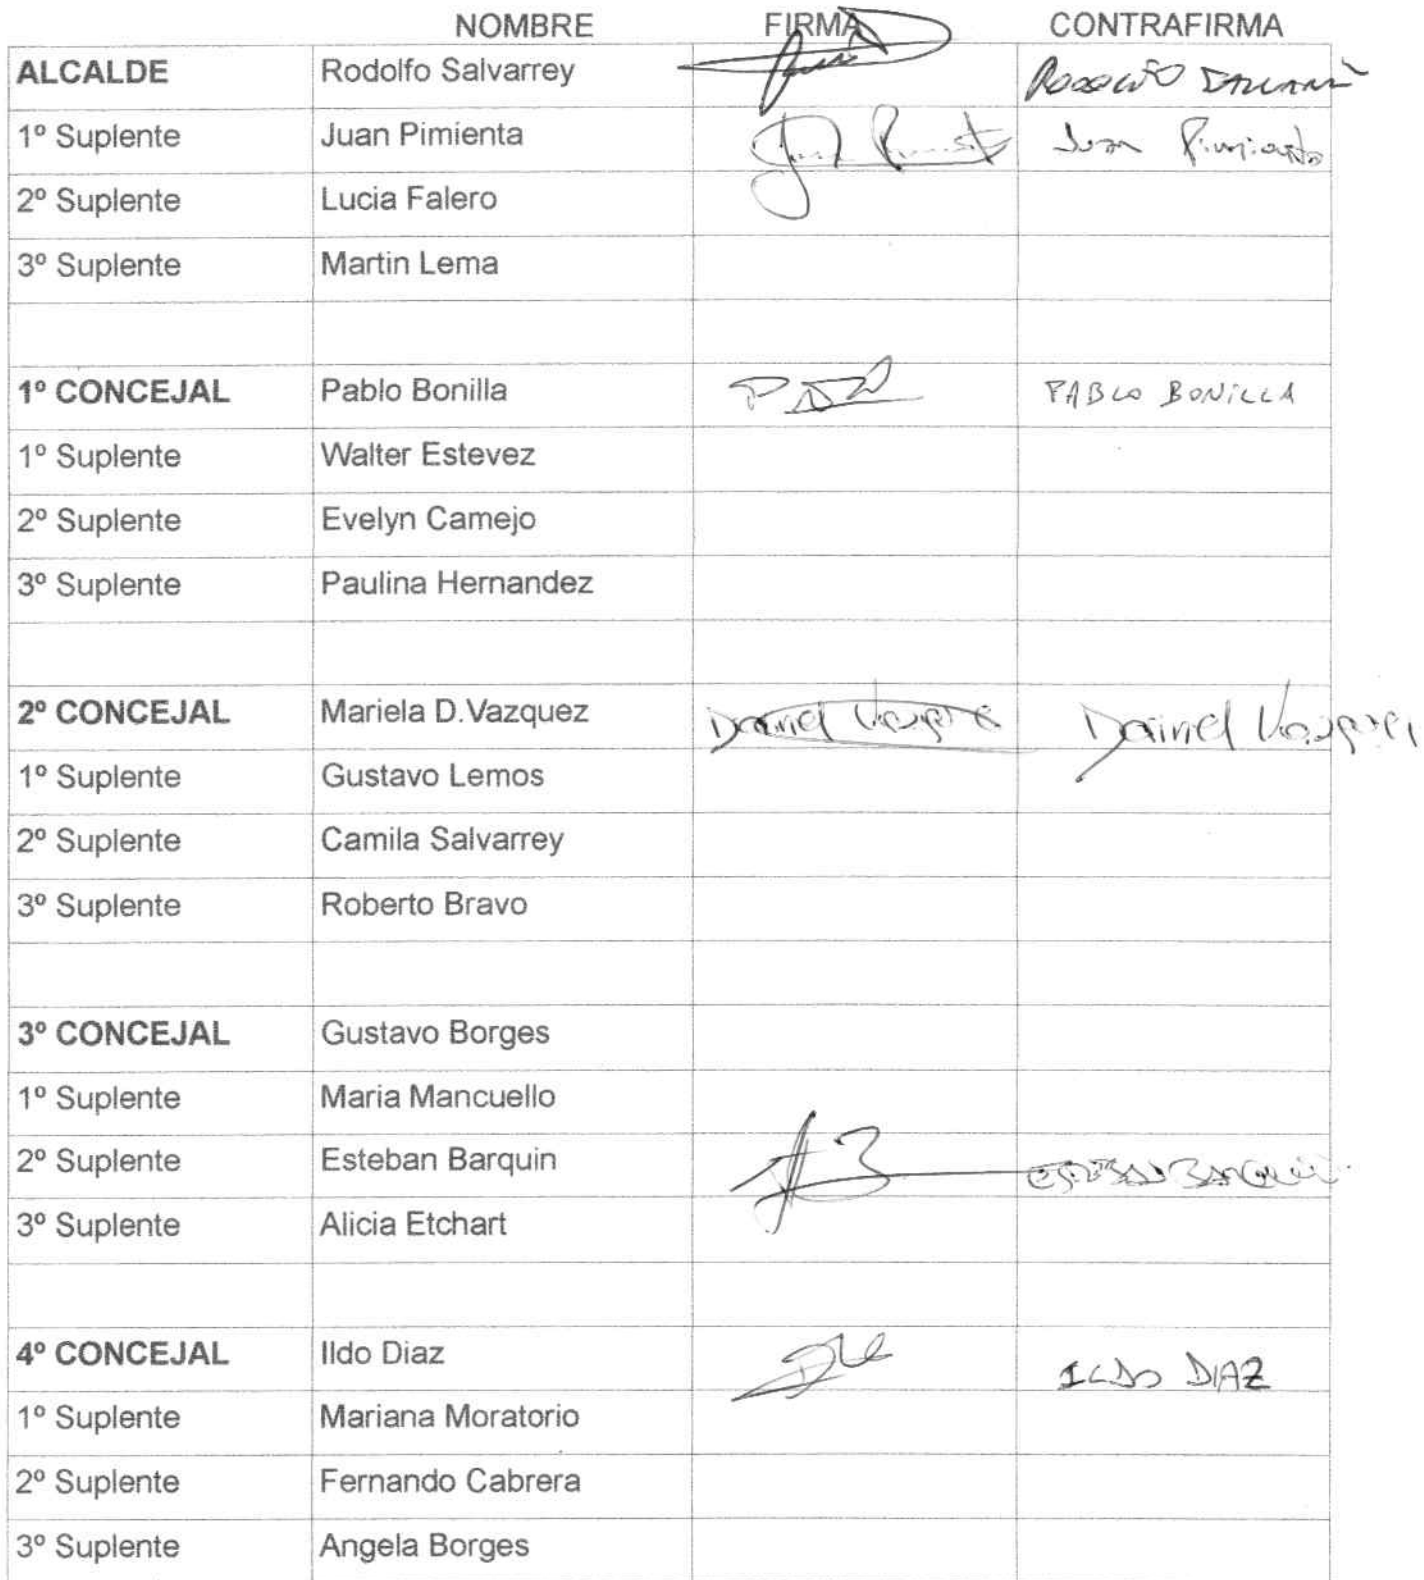 NOMBRE FIRMA CONTRAFIRMA
ALCALDE Rodolfo Salvarrey
1º Suplente Juan Pimienta Juan Pimienta
2º Suplente Lucia Falero
3º Suplente Martin Lema
1º CONCEJAL Pablo Bonilla PABLO BONILLA
1º Suplente Walter Estevez
2º Suplente Evelyn Camejo
3º Suplente Paulina Hernandez
2º CONCEJAL Mariela D.Vazquez
1º Suplente Gustavo Lemos
2º Suplente Camila Salvarrey
3º Suplente Roberto Bravo
3º CONCEJAL Gustavo Borges
1º Suplente Maria Mancuello
2º Suplente Esteban Barquin ESTEBAN BARQUIN
3º Suplente Alicia Etchart
4º CONCEJAL Ildo Diaz ILDO DIAZ
1º Suplente Mariana Moratorio
2º Suplente Fernando Cabrera
3º Suplente Angela Borges